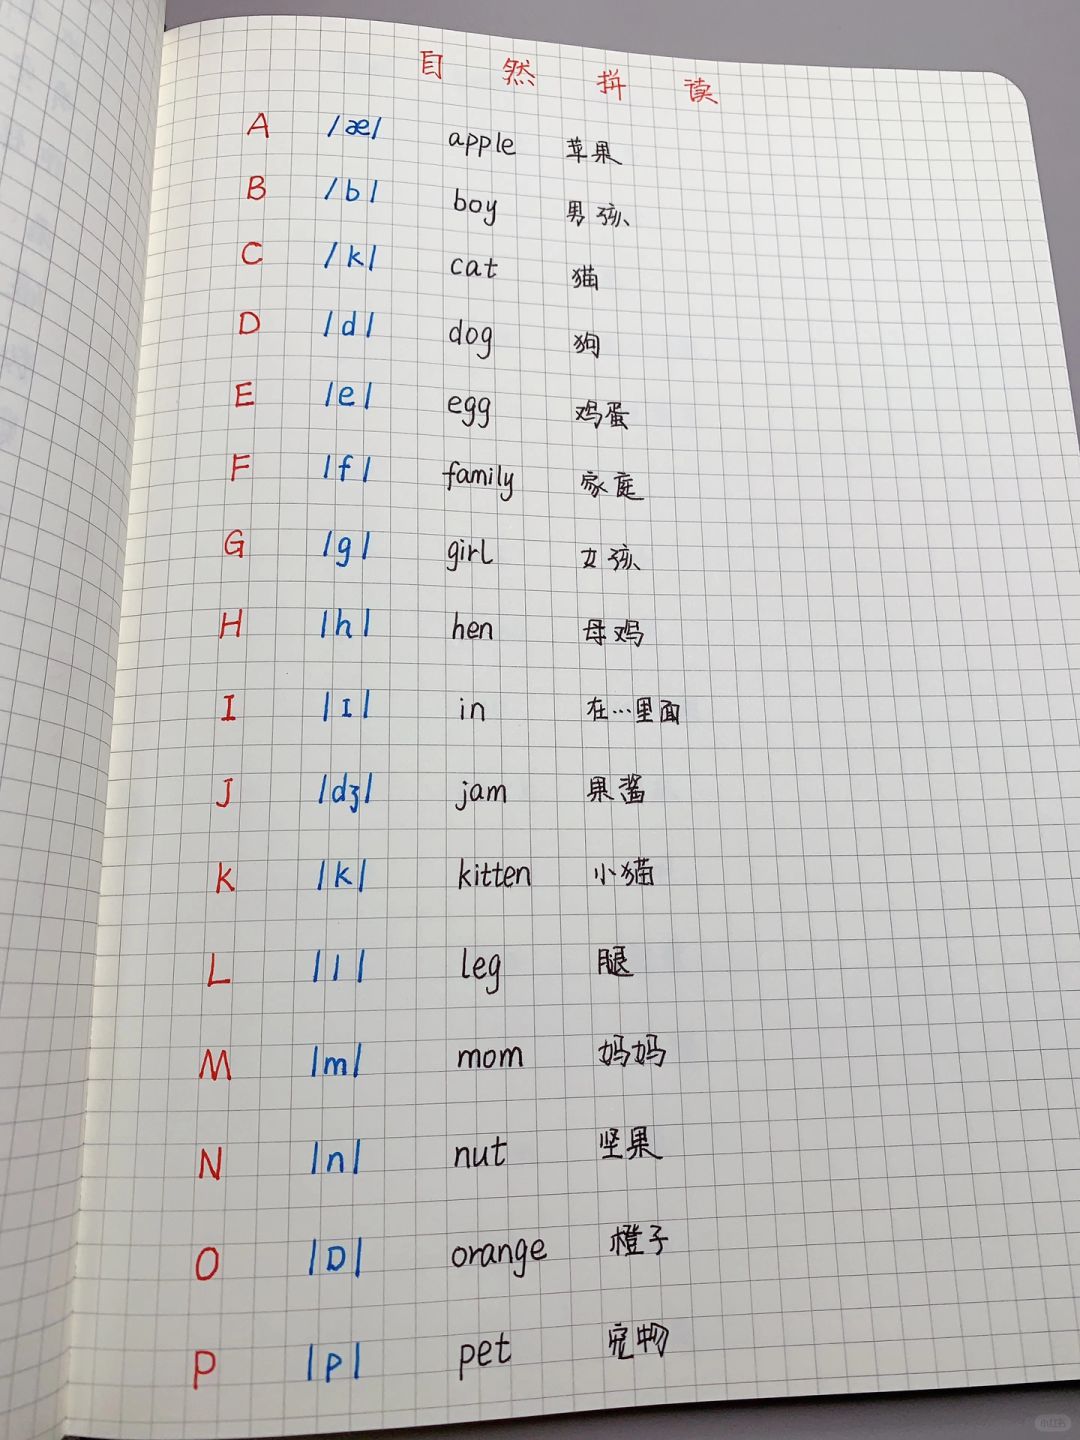 自然拼读
A /æ/ apple 苹果
B /b/ boy 男孩
C /k/ cat 猫
D /d/ dog 狗
E /e/ egg 鸡蛋
F /f/ family 家庭
G /g/ girl 女孩
H /h/ hen 母鸡
I /ɪ/ in 在…里面
J /dʒ/ jam 果酱
K /k/ kitten 小猫
L /l/ leg 腿
M /m/ mom 妈妈
N /n/ nut 坚果
O /ɒ/ orange 橙子
P /p/ pet 宠物
小红书